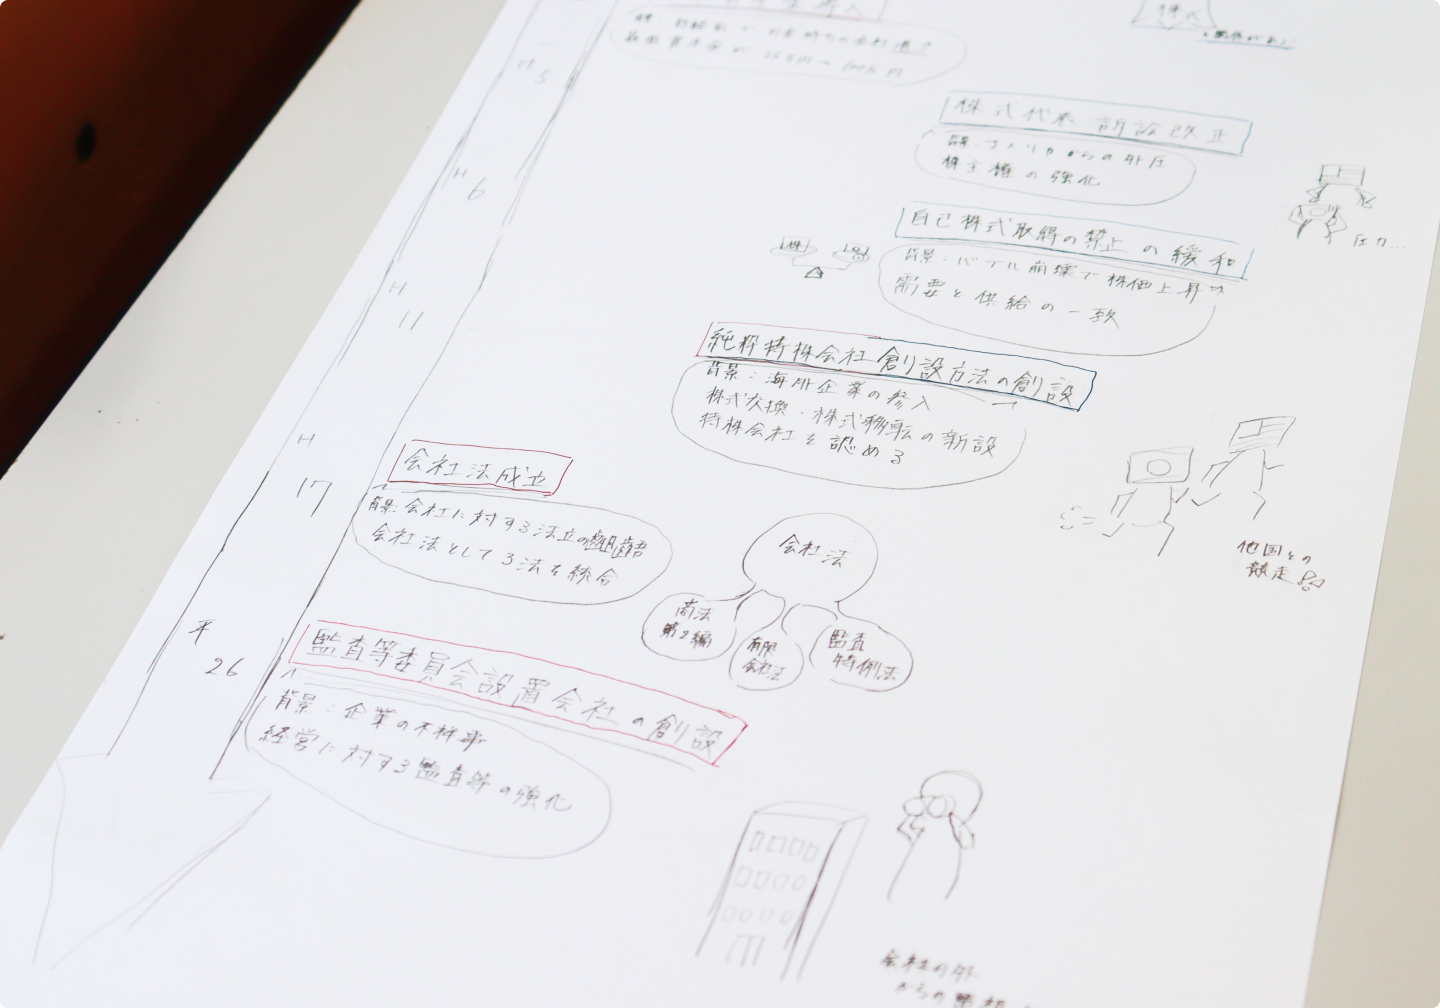 H
5
株式代表訴訟改正
背景:アメリカからの外圧
株主権の強化
圧力…
H
6
自己株式取得の禁止の緩和
背景:バブル崩壊で株価上昇
需要と供給の一致
株
H
11
純粋持株会社創設方法の創設
背景:海外企業の参入
株式交換・株式移転の新設
持株会社を認める
他国との
競走
H
17
会社法成立
背景:会社に対する法立の齟齬
会社法として3法を統合
会社法
商法
第2編
有限
会社法
監査
特例法
平
26
監査等委員会設置会社の創設
背景:企業の不祥事
経営に対する監査等の強化
会社の外
からの